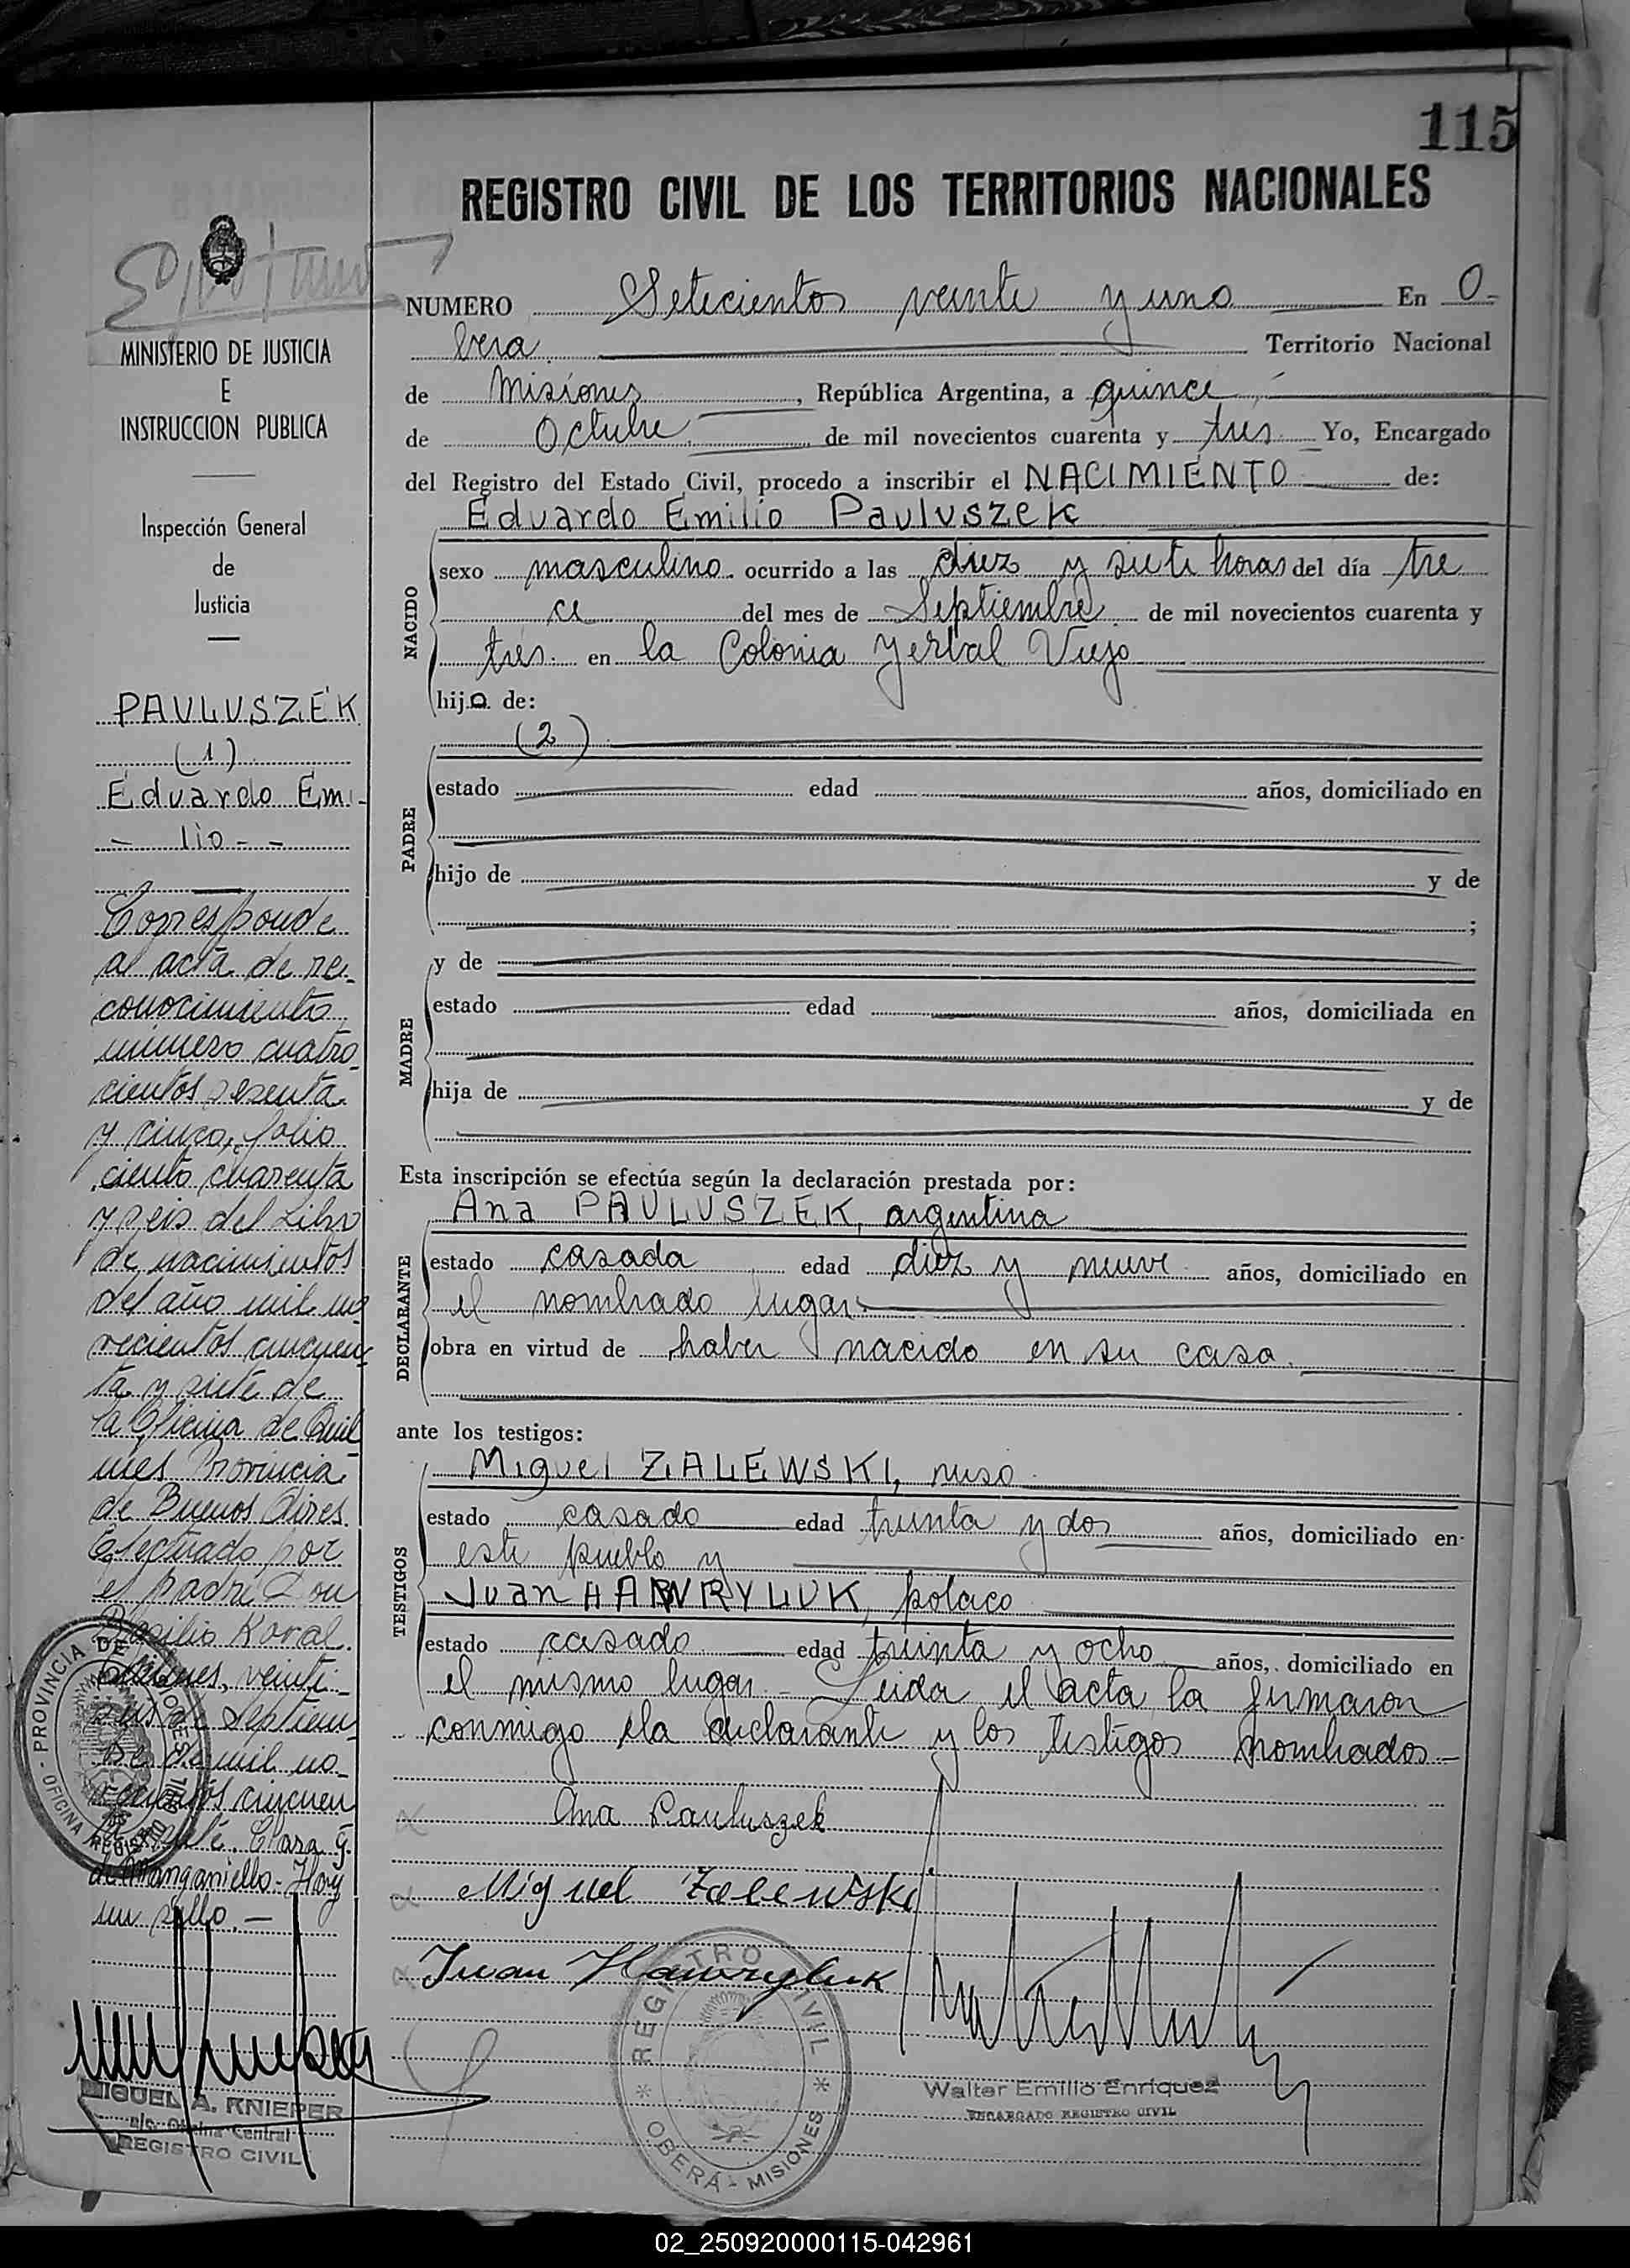 115
REGISTRO CIVIL DE LOS TERRITORIOS NACIONALES
MINISTERIO DE JUSTICIA
E
INSTRUCCION PUBLICA
Inspección General
de
Justicia
PAULUSZEK
(1)
Eduardo Emi-
- lio - -
Corresponde
al acta de re-
conocimiento
número cuatro-
cientos sesenta
y cinco, folio
ciento cuarenta
y seis del Libro
de nacimientos
del año mil no
vecientos cincuen-
ta y siete de
la Oficina de Quil
mes Provincia
de Buenos Aires.
Efectuado por
el padre Don
Basilio Koval.
veinti-
de Septiem
bre de mil no-
vecientos cincuen
Clara G.
de Manganiello.- Hay
un sello.-
PROVINCIA DE MISIONES
- OFICINA REGISTRO CIVIL
MIGUEL A. KNIEPER
a/c. Oficina Central
REGISTRO CIVIL
NUMERO Setecientos veinte y uno En O-
bera Territorio Nacional
de Misiones, República Argentina, a quince
de Octubre de mil novecientos cuarenta y tres Yo, Encargado
del Registro del Estado Civil, procedo a inscribir el NACIMIENTO de:
Eduardo Emilio Pauluszek
NACIDO
sexo masculino ocurrido a las diez y siete horas del día tre
ce del mes de Septiembre de mil novecientos cuarenta y
tres en la Colonia Yerbal Viejo
hijo de:
PADRE
(2)
estado edad años, domiciliado en
hijo de y de
;
MADRE
y de
estado edad años, domiciliada en
hija de y de
Esta inscripción se efectúa según la declaración prestada por:
DECLARANTE
Ana PAULUSZEK, argentina
estado casada edad diez y nueve años, domiciliado en
el nombrado lugar.
obra en virtud de haber nacido en su casa.
ante los testigos:
TESTIGOS
Miguel ZALEWSKI, ruso
estado casado edad treinta y dos años, domiciliado en
este pueblo y
Juan HAWRYLUK, polaco
estado casado edad treinta y ocho años, domiciliado en
el mismo lugar.- Leida el acta, la firmaron
conmigo, la declarante y los testigos nombrados.-
Ana Pauluszek
Miguel Zalewski
Juan Hawryluk
REGISTRO CIVIL
* OBERÁ - MISIONES *
Walter Emilio Enriquez
ENCARGADO REGISTRO CIVIL
02_250920000115-042961